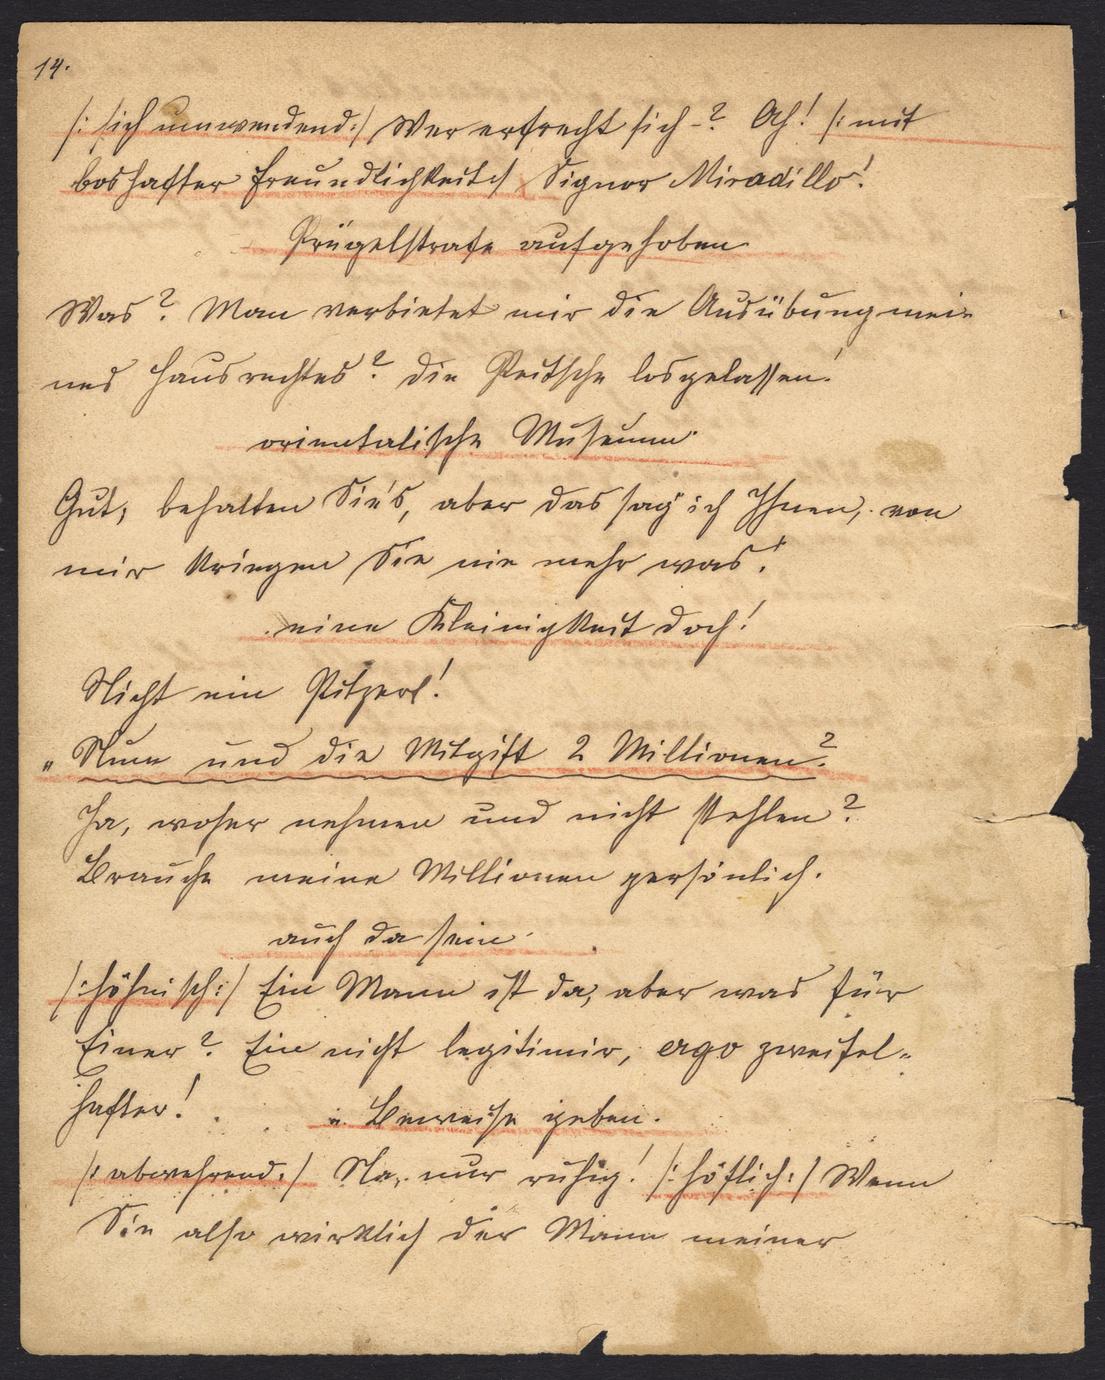 14.
/: sich umwendend:/ Wer erfrecht sich -? Ah! /: mit
boshafter Freundlichkeit:/ Signor Miradillo!
Prügelstrafe aufgehoben
Was? Man verbietet mir die Ausübung mei-
nes Hausrechtes? Die Peitsche losgelassen!
orientalische Museum.
Gut, behalten Sie's, aber das sag' ich Ihnen, von
mir kriegen Sie nie mehr was!
eine Kleinigkeit doch!
Nicht ein Pitzerl!
„Nun und die Mitgift 2 Millionen?
Ja, woher nehmen und nicht stehlen?
Brauche meine Millionen persönlich.
auch da sein.
/: höhnisch:/ Ein Mann ist da, aber was für
Einer? Ein nicht legitimir, ergo zweifel-
hafter!
u. Beweise geben.
/: abwehrend:/ Na, nur ruhig! /: höflich:/ Wenn
Sie also wirklich der Mann meiner